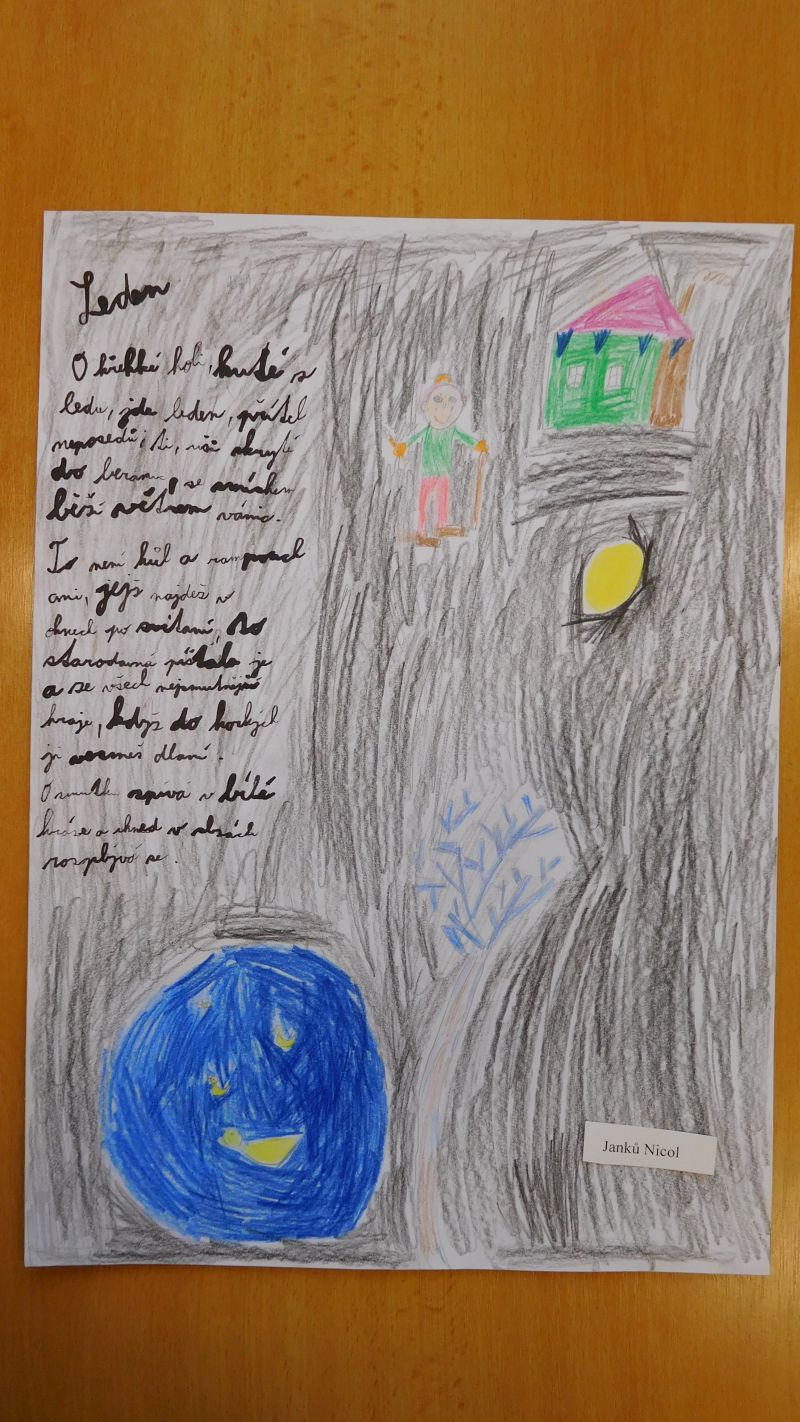 Leden
O křehké holi, kuté z
ledu, jde leden, přítel
neposedů; ti, uši skryté
do beranic, se smíchem
běží větrem vánic.
To není hůl a rampouch
ani, jejž najdeš v
dnech po svítaní, to
starodavná píšťala je
a ze všech nejsmutnější
hraje, když do horkých
ji vezmeš dlaní.
O smutku zpívá v bílé
kráse a ihned v slzách
rozplývá se.
Janků Nicol